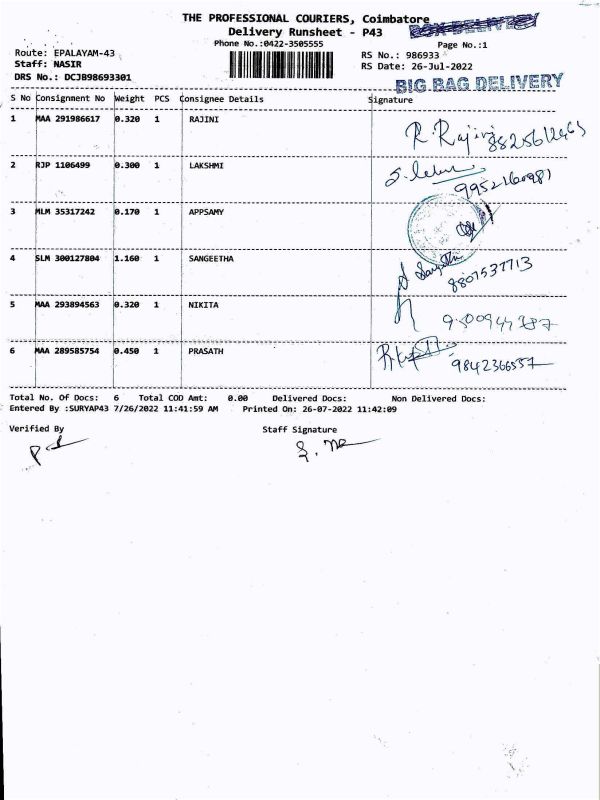 THE PROFESSIONAL COURIERS, Coimbatore
BOX DELIVERY
Delivery Runsheet - P43
Phone No.:0422-3505555
Page No.:1
Route: EPALAYAM-43
RS No.: 986933
Staff: NASIR
RS Date: 26-Jul-2022
DRS No.: DCJB98693301
BIG BAG DELIVERY
S No Consignment No Weight PCS Consignee Details Signature
1 MAA 291986617 0.320 1 RAJINI R. Rajini
2 RJP 1106499 0.300 1 LAKSHMI
3 MLM 35317242 0.170 1 APPSAMY
4 SLM 300127804 1.160 1 SANGEETHA Sangeetha 8807537713
5 MAA 293894563 0.320 1 NIKITA
6 MAA 289585754 0.450 1 PRASATH 9842366557
Total No. Of Docs: 6 Total COD Amt: 0.00 Delivered Docs: Non Delivered Docs:
Entered By :SURYAP43 7/26/2022 11:41:59 AM Printed On: 26-07-2022 11:42:09
Verified By Staff Signature